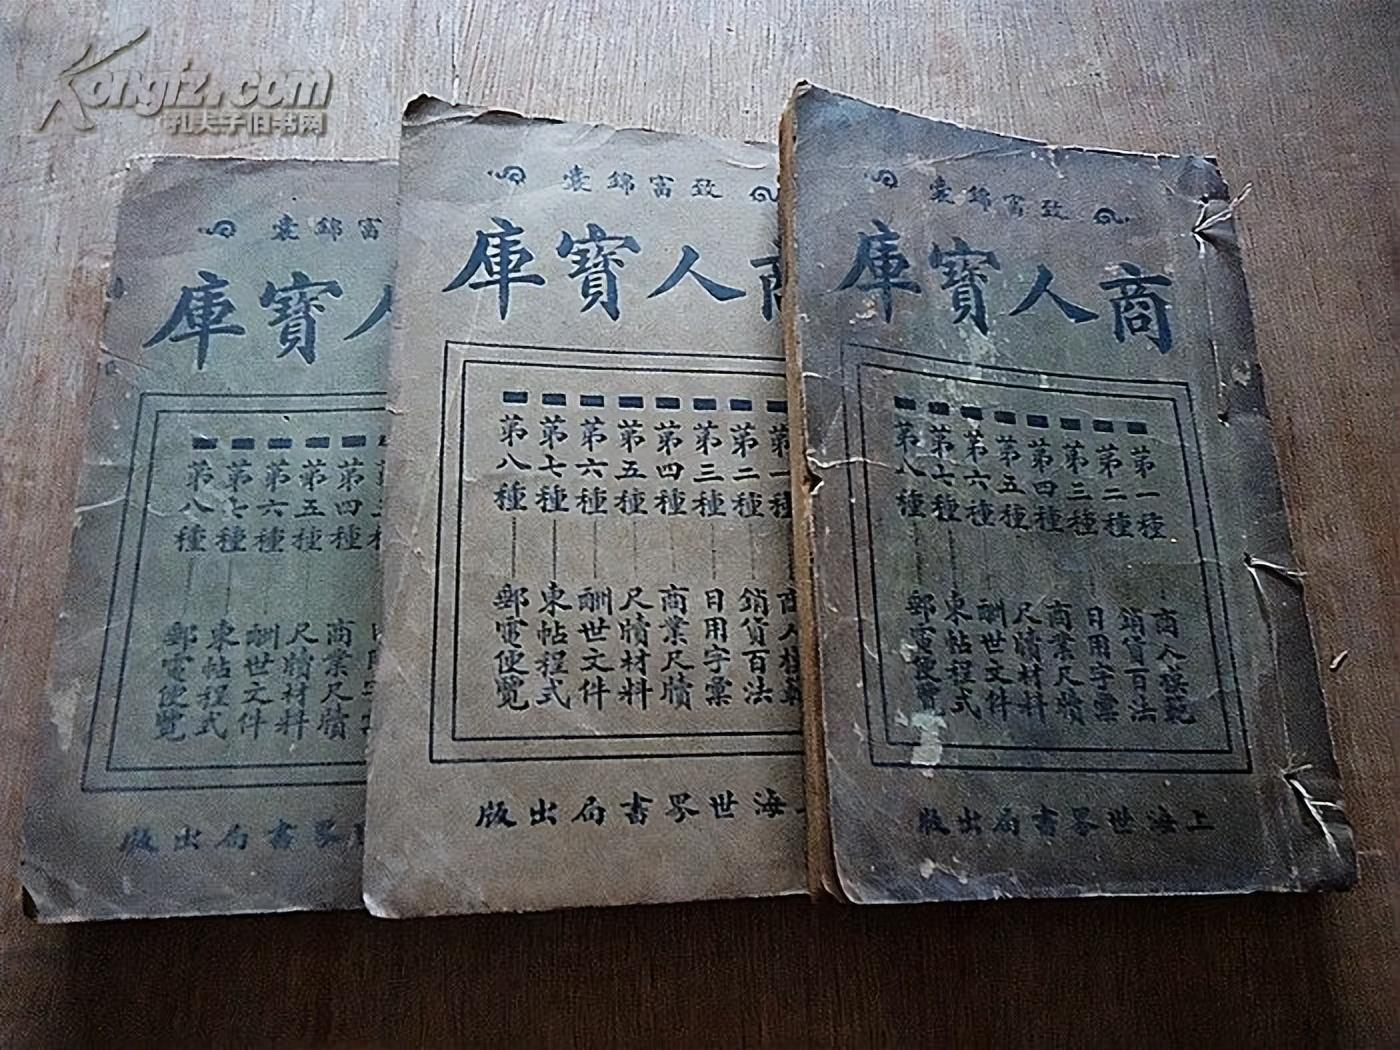 Kongfz.com
孔夫子旧书网
富錦囊
寶庫
第四種 商業尺牘
第五種 尺牘材料
第六種 酬世文件
第七種 柬帖程式
第八種 郵電便覽
界書局出版
致富錦囊
商人寶庫
第一種 商人模範
第二種 銷貨百法
第三種 日用字彙
第四種 商業尺牘
第五種 尺牘材料
第六種 酬世文件
第七種 柬帖程式
第八種 郵電便覽
海世界書局出版
致富錦囊
商人寶庫
第一種 商人模範
第二種 銷貨百法
第三種 日用字彙
第四種 商業尺牘
第五種 尺牘材料
第六種 酬世文件
第七種 柬帖程式
第八種 郵電便覽
上海世界書局出版